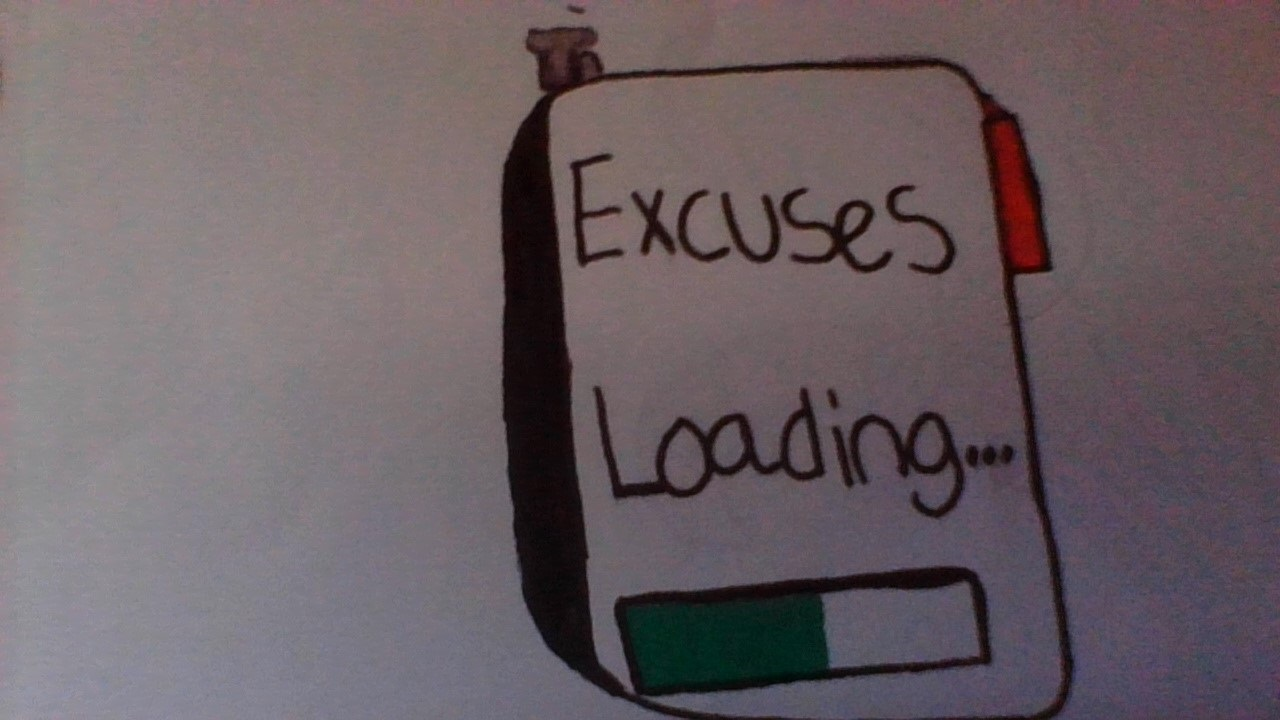 Excuses
Loading...